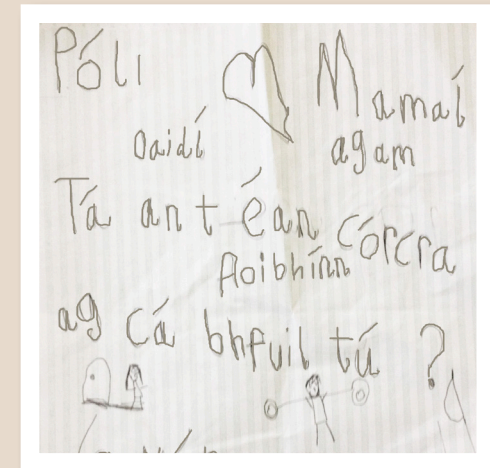 Pólí ♡ Mamaí
Daidí agam
Tá an t-éan córcra
Aoibhínn
ag cá bhfuil tú ?